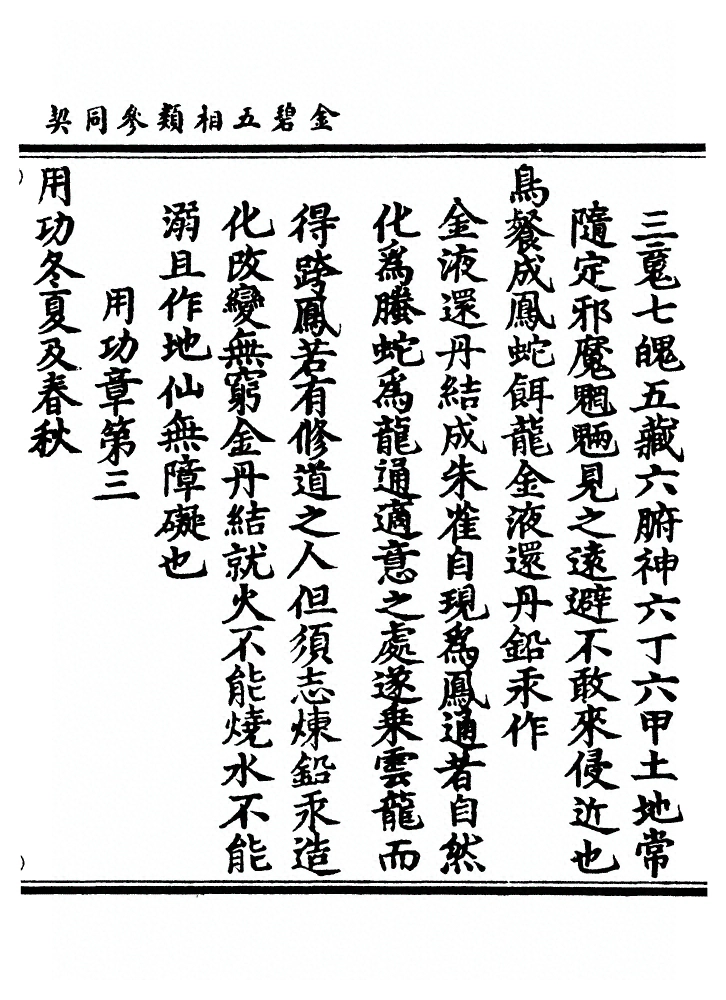 金碧五相類參同契
三䰟七魄五藏六腑神六丁六甲土地常
隨定邪魔魍魎見之遠避不敢來侵近也
鳥餐成鳳蛇餌龍金液還丹鉛汞作
金液還丹結成朱雀自現爲鳳通者自然
化爲螣蛇爲龍通適意之處遂乗雲龍而
得跨鳳若有修道之人但須志煉鉛汞造
化改變無窮金丹結就火不能燒水不能
溺且作地仙無障礙也
用功章第三
用功冬夏及春秋